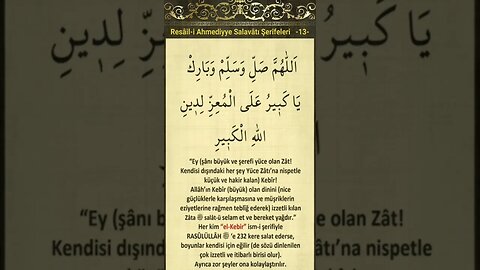 Resâil-i Ahmediyye Salavâtı Şerifeleri -13-
اَللّٰهُمَّ صَلِّ وَسَلِّمْ وَبَارِكْ
يَا كَبِيرُ عَلَى الْمُعِزِّ لِدِينِ
اللهِ الْكَبِيرِ
"Ey (şânı büyük ve şerefi yüce olan Zât!
Kendisi dışındaki her şey Yüce Zâtı'na nispetle
küçük ve hakir kalan) Kebîr!
Allâh'ın Kebîr (büyük) olan dinini (nice
güçlüklerle karşılaşmasına ve müşriklerin
eziyetlerine rağmen tebliğ ederek) izzetli kılan
Zâta ﷺ salât-ü selam et ve bereket yağdır."
Her kim "el-Kebîr" ism-i şerifiyle
RASÛLÜLLÂH ﷺ 'e 232 kere salat ederse,
boyunlar kendisi için eğilir (de sözü dinlenilen
çok izzetli ve itibarlı birisi olur).
Ayrıca zor şeyler ona kolaylaştırılır.
"Ey (şânı
Kendisi dışında
olan Zât!
âtı'na nispetle